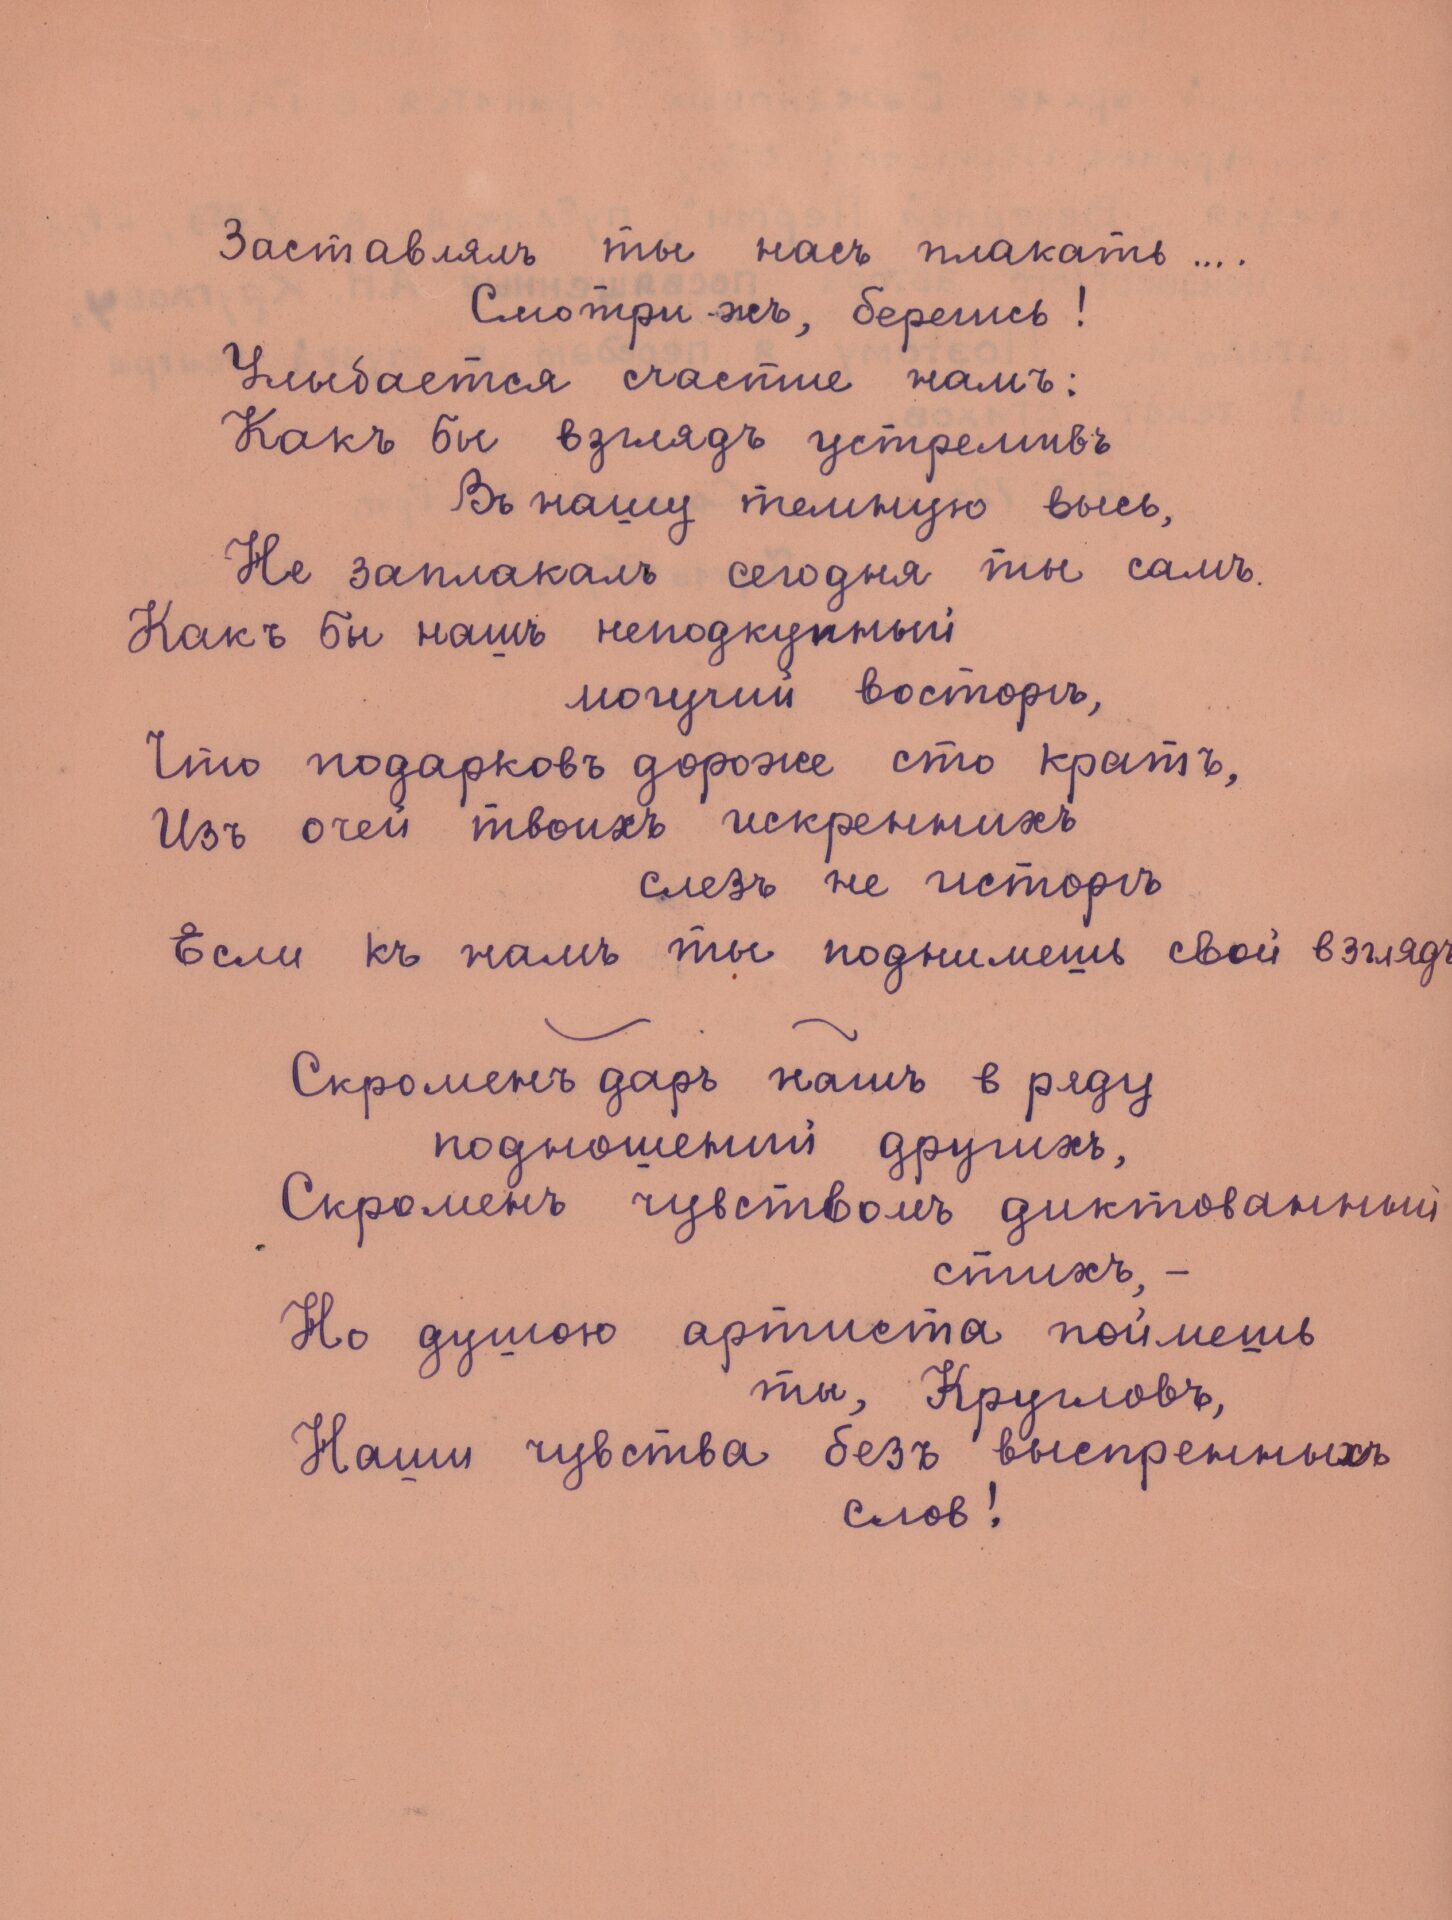 Заставлялъ ты насъ плакать....
Смотри-жъ, берегись!
Улыбается счастие намъ:
Какъ бы взглядъ устремивъ
Въ нашу темную высь,
Не заплакалъ сегодня ты самъ.
Какъ бы нашъ неподкупный
могучий восторгъ,
Что подарковъ дороже сто кратъ,
Изъ очей твоихъ искреннихъ
слезъ не исторгъ
Если къ намъ ты поднимешь свой взглядъ
Скроменъ даръ нашъ в ряду
подношений другихъ,
Скроменъ чувствомъ диктованный
стихъ, –
Но душою артиста поймешь
ты, Кругловъ,
Наши чувства безъ выспренныхъ
слов!